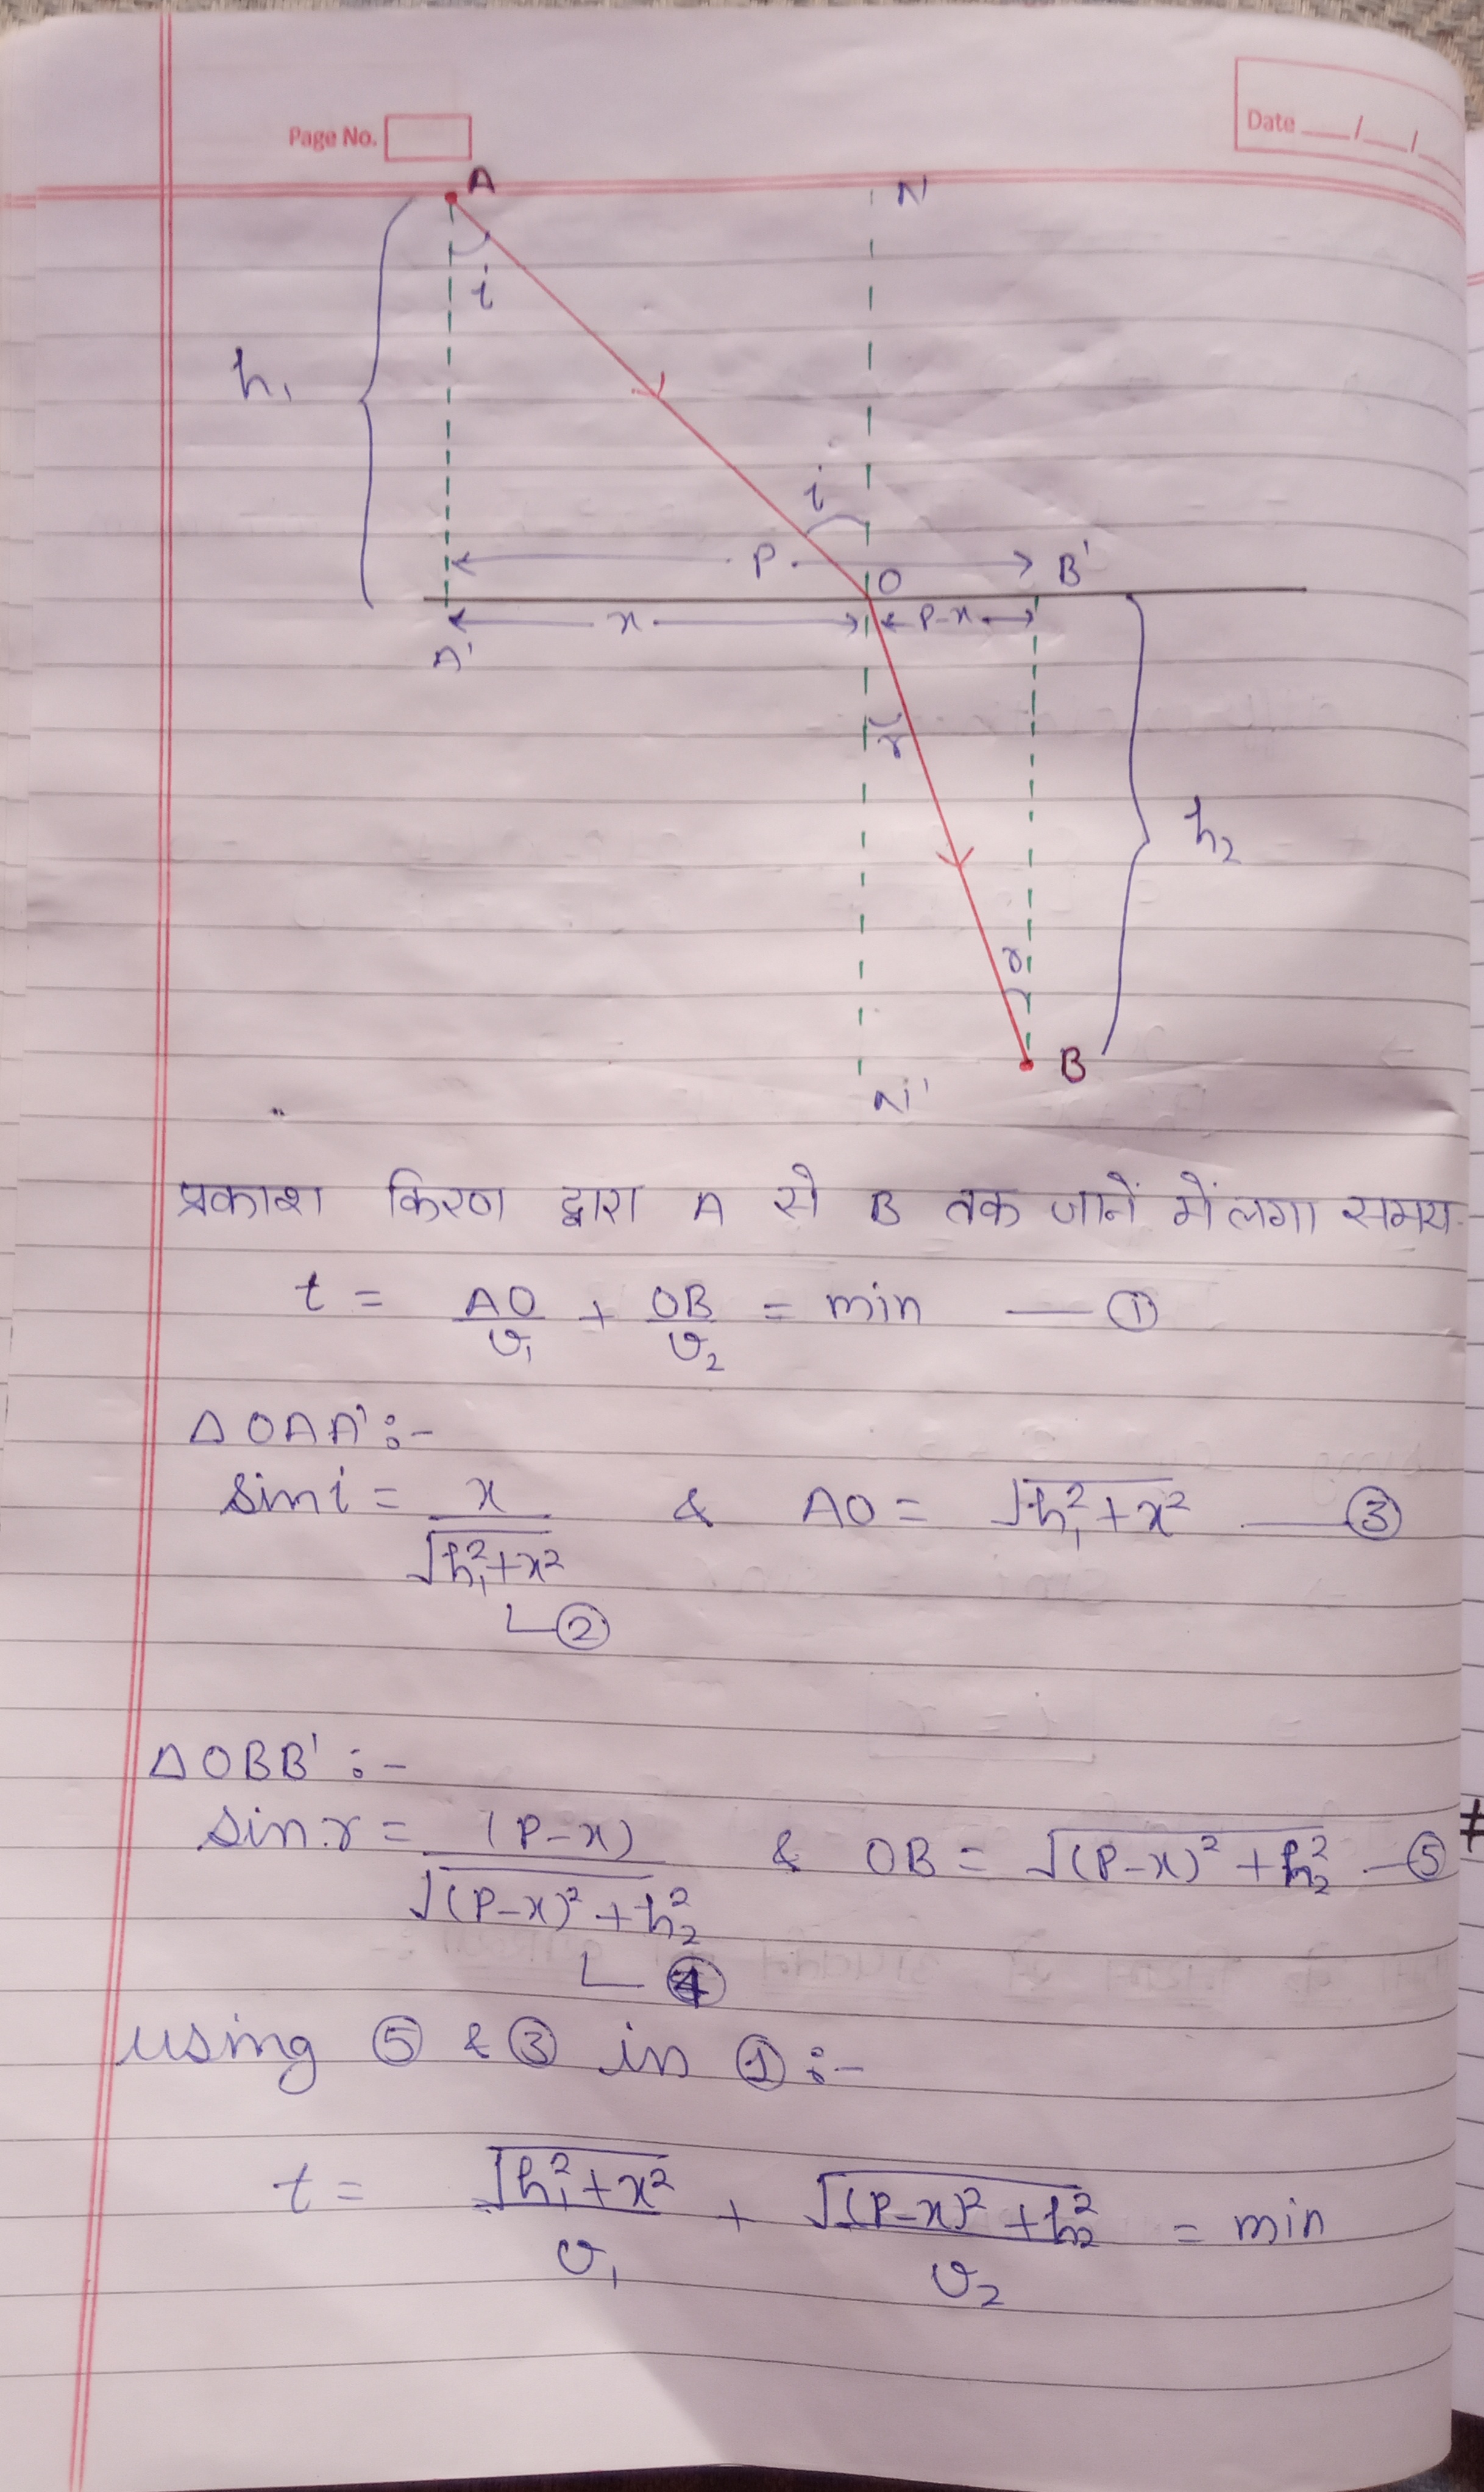 Page No.
Date __/__/__
A
N
i
h₁
i
P
O
B'
x
P-x
A'
r
h₂
r
B
N'
प्रकाश किरण द्वारा A से B तक जानें में लगा समय-
t = AO/v₁ + OB/v₂ = min — ①
△OAA' :-
sin i = x/√(h₁²+x²) & AO = √(h₁²+x²) — ③
└②
△OBB' :-
sin r = (P-x)/√((P-x)²+h₂²) & OB = √((P-x)²+h₂²) — ⑤
└ ④
using ⑤ & ③ in ① :-
t = √(h₁²+x²)/v₁ + √((P-x)²+h₂²)/v₂ = min